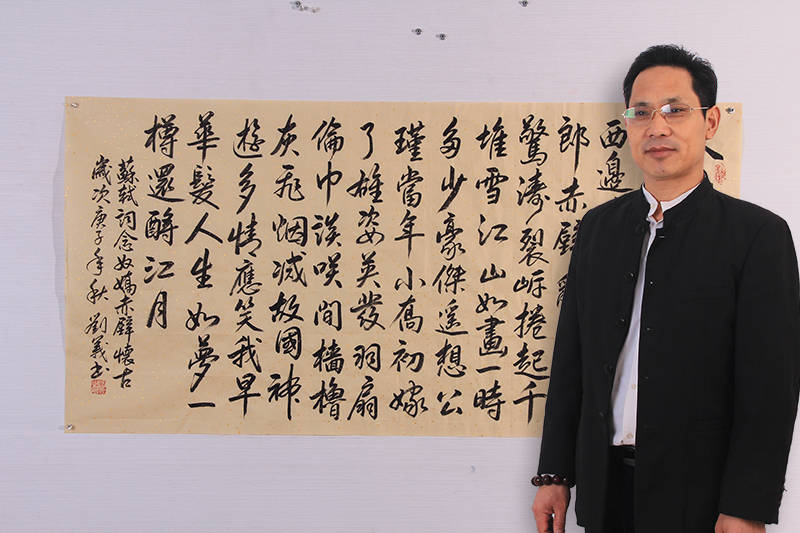 西邊
郎赤壁
驚濤裂岸捲起千
堆雪江山如畫一時
多少豪傑遙想公
瑾當年小喬初嫁
了雄姿英發羽扇
倫巾談咲間檣櫓
灰飛烟滅故國神
遊多情應笑我早
華髮人生如夢一
樽還酹江月
蘇軾詞念奴嬌赤壁懷古
歲次庚子年秋劉義書